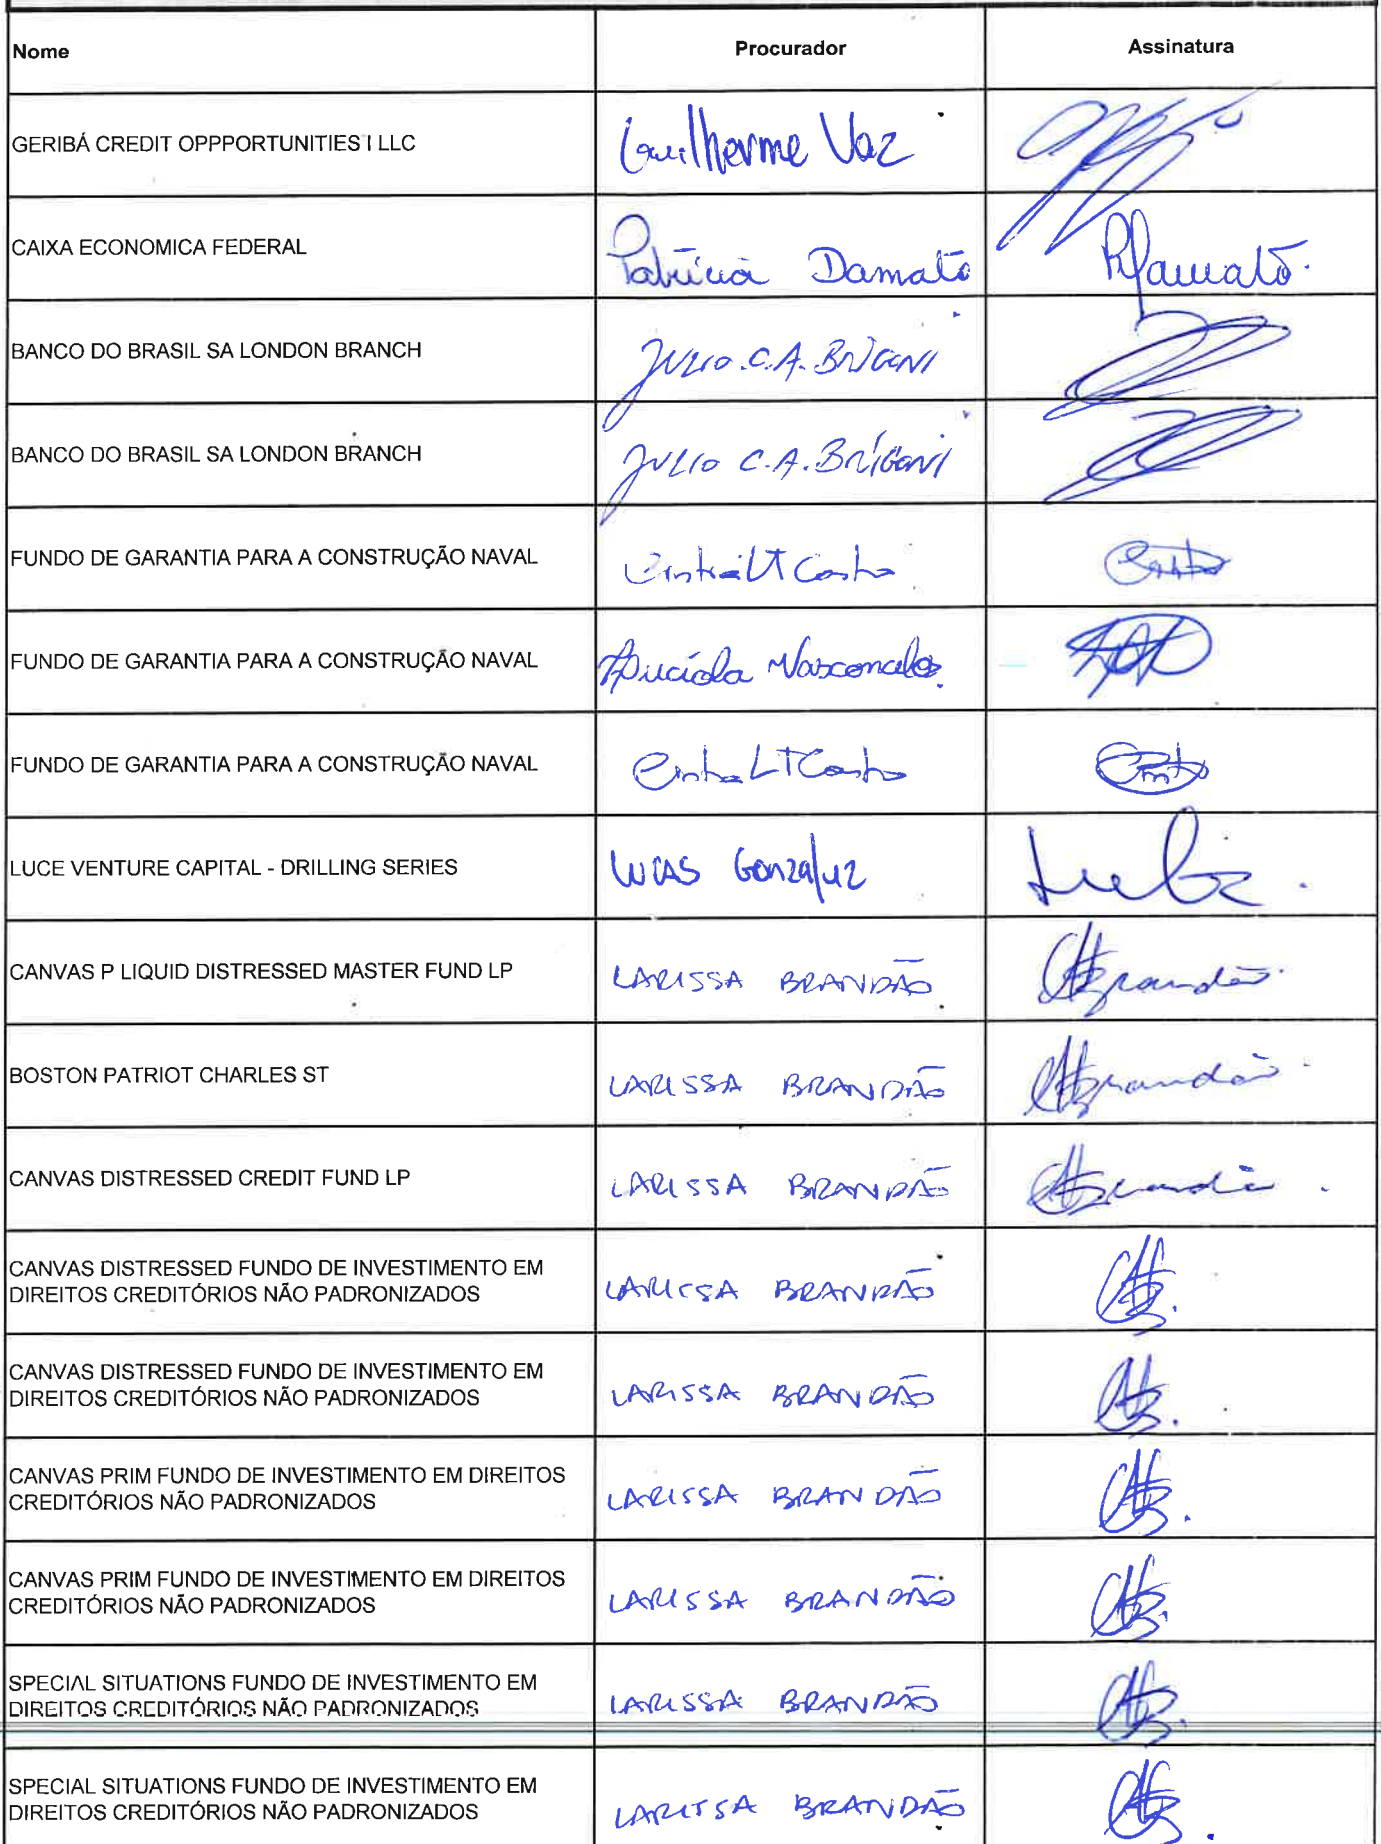 Nome Procurador Assinatura
GERIBÁ CREDIT OPPPORTUNITIES I LLC Guilherme Vaz
CAIXA ECONOMICA FEDERAL Patrícia Damato PDamato.
BANCO DO BRASIL SA LONDON BRANCH JULIO.C.A.BRIGONI
BANCO DO BRASIL SA LONDON BRANCH JULIO C.A.BRIGONI
FUNDO DE GARANTIA PARA A CONSTRUÇÃO NAVAL Cintia LT Costa
FUNDO DE GARANTIA PARA A CONSTRUÇÃO NAVAL Vasconcelos
FUNDO DE GARANTIA PARA A CONSTRUÇÃO NAVAL Cintia LT Costa
LUCE VENTURE CAPITAL - DRILLING SERIES LUCAS
CANVAS P LIQUID DISTRESSED MASTER FUND LP LARISSA BRANDÃO Brandão
BOSTON PATRIOT CHARLES ST LARISSA BRANDÃO Brandão
CANVAS DISTRESSED CREDIT FUND LP LARISSA BRANDÃO Brandão
CANVAS DISTRESSED FUNDO DE INVESTIMENTO EM
DIREITOS CREDITÓRIOS NÃO PADRONIZADOS LARISSA BRANDÃO
CANVAS DISTRESSED FUNDO DE INVESTIMENTO EM
DIREITOS CREDITÓRIOS NÃO PADRONIZADOS LARISSA BRANDÃO
CANVAS PRIM FUNDO DE INVESTIMENTO EM DIREITOS
CREDITÓRIOS NÃO PADRONIZADOS LARISSA BRANDÃO
CANVAS PRIM FUNDO DE INVESTIMENTO EM DIREITOS
CREDITÓRIOS NÃO PADRONIZADOS LARISSA BRANDÃO
SPECIAL SITUATIONS FUNDO DE INVESTIMENTO EM
DIREITOS CREDITÓRIOS NÃO PADRONIZADOS LARISSA BRANDÃO
SPECIAL SITUATIONS FUNDO DE INVESTIMENTO EM
DIREITOS CREDITÓRIOS NÃO PADRONIZADOS LARISSA BRANDÃO